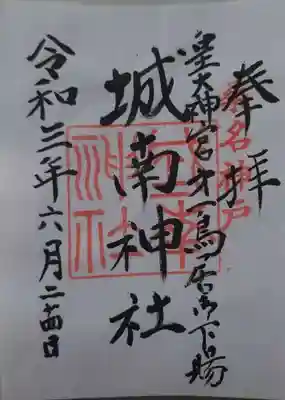 奉拝
皇大神宮才一鳥居御下賜
城南神社
城南神社
令和三年六月二十四日